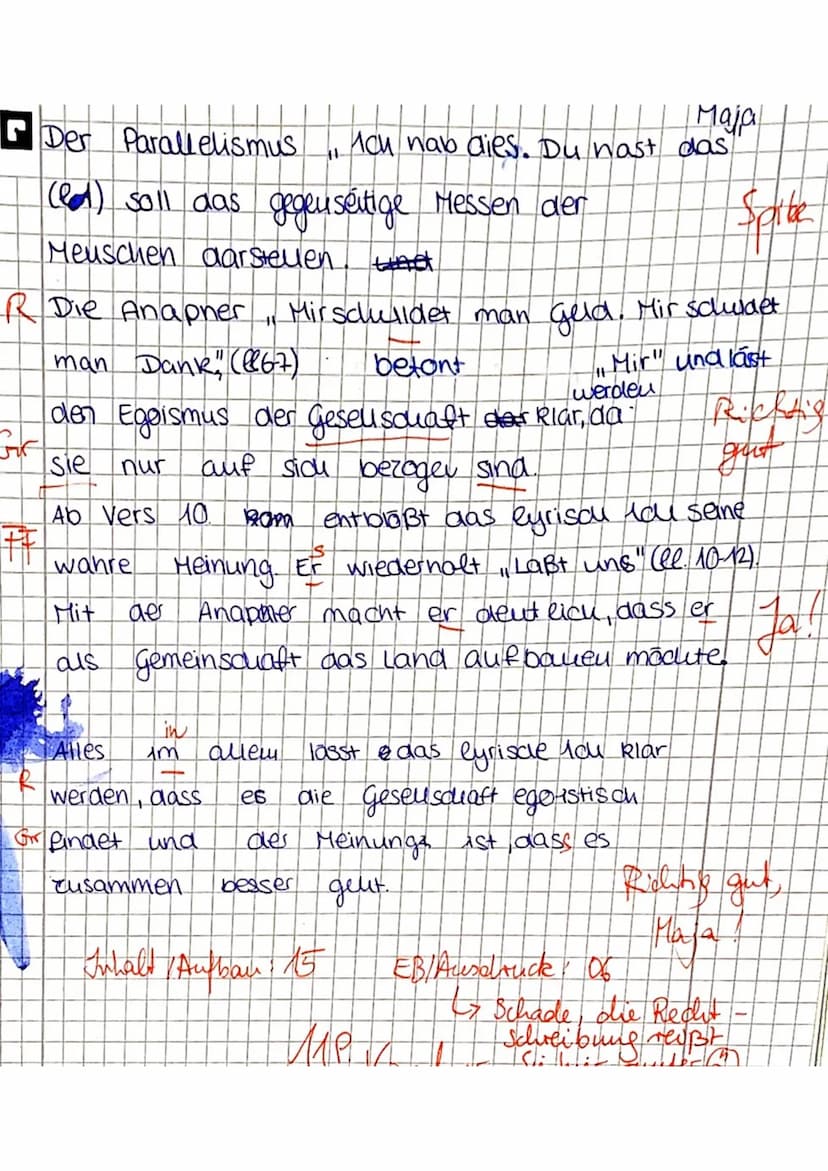 Maja
Der Parallelismus „Ich hab dies. Du hast das"
soll das gegenseitige Messen der
Spitze
Menschen darstellen. und
R Die Anapher „Mir schuldet man Geld. Mir schuldet
man Dank," (ll67) betont „Mir" und läst
werden
den Egoismus der Gesellschaft der klar, da
Richtig
gut
Gr
sie nur auf sich bezogen sind.
Ab Vers 10 entblößt das lyrisch Ich seine
FF
s
wahre Meinung. Er wiederholt „Laßt uns" (ll. 10-12).
Mit der Anapher macht er deutlich, dass er
Ja!
als Gemeinschaft das Land aufbauen möchte.
in
Alles im allem lässt das lyrische Ich klar
R
werden, dass es die Gesellschaft egoistisch
Gr findet und der Meinung ist, dass es
zusammen besser geht.
Richtig gut,
Maja!
Inhalt / Aufbau: 15 EB/Ausdruck: 06
↳ Schade, die Recht-
schreibung reißt
11P.